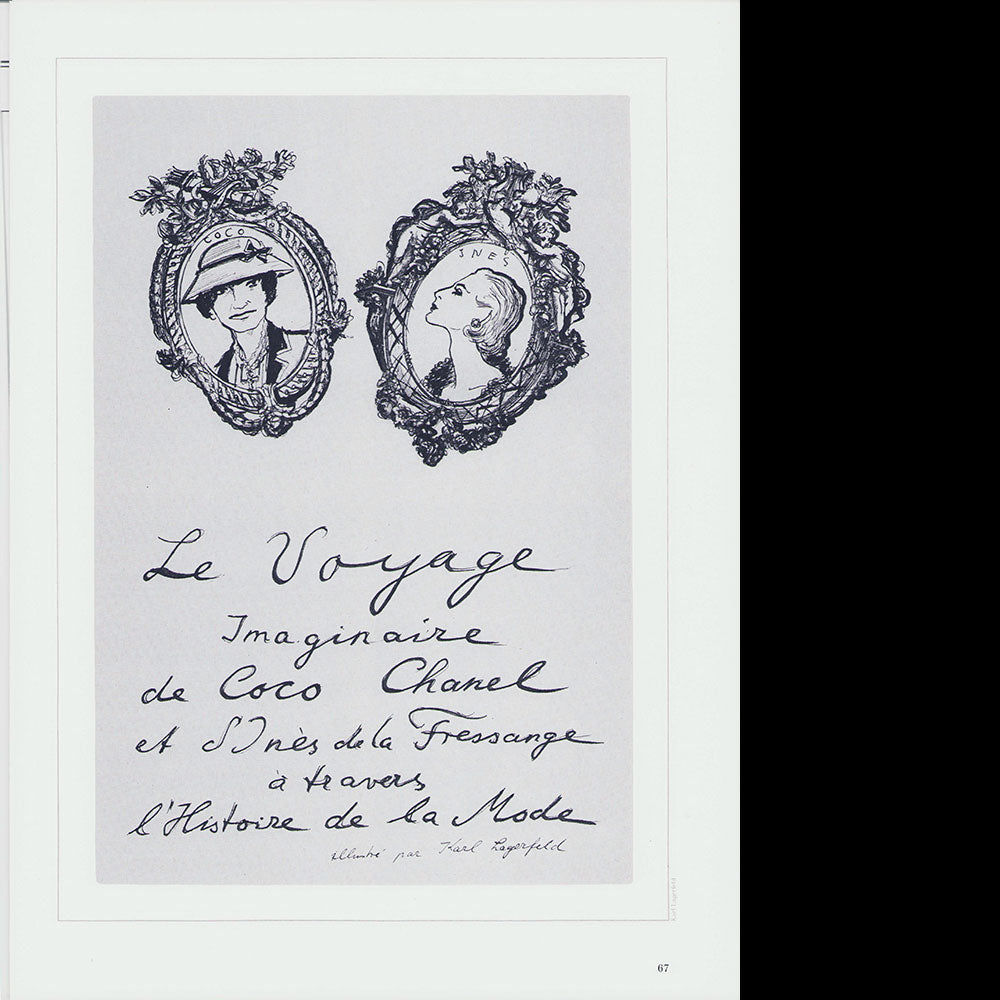 COCO
INÈS
Le Voyage
Imaginaire
de Coco Chanel
et d'Inès de la Fressange
à travers
l'Histoire de la Mode
illustré par Karl Lagerfeld
Karl Lagerfeld
67